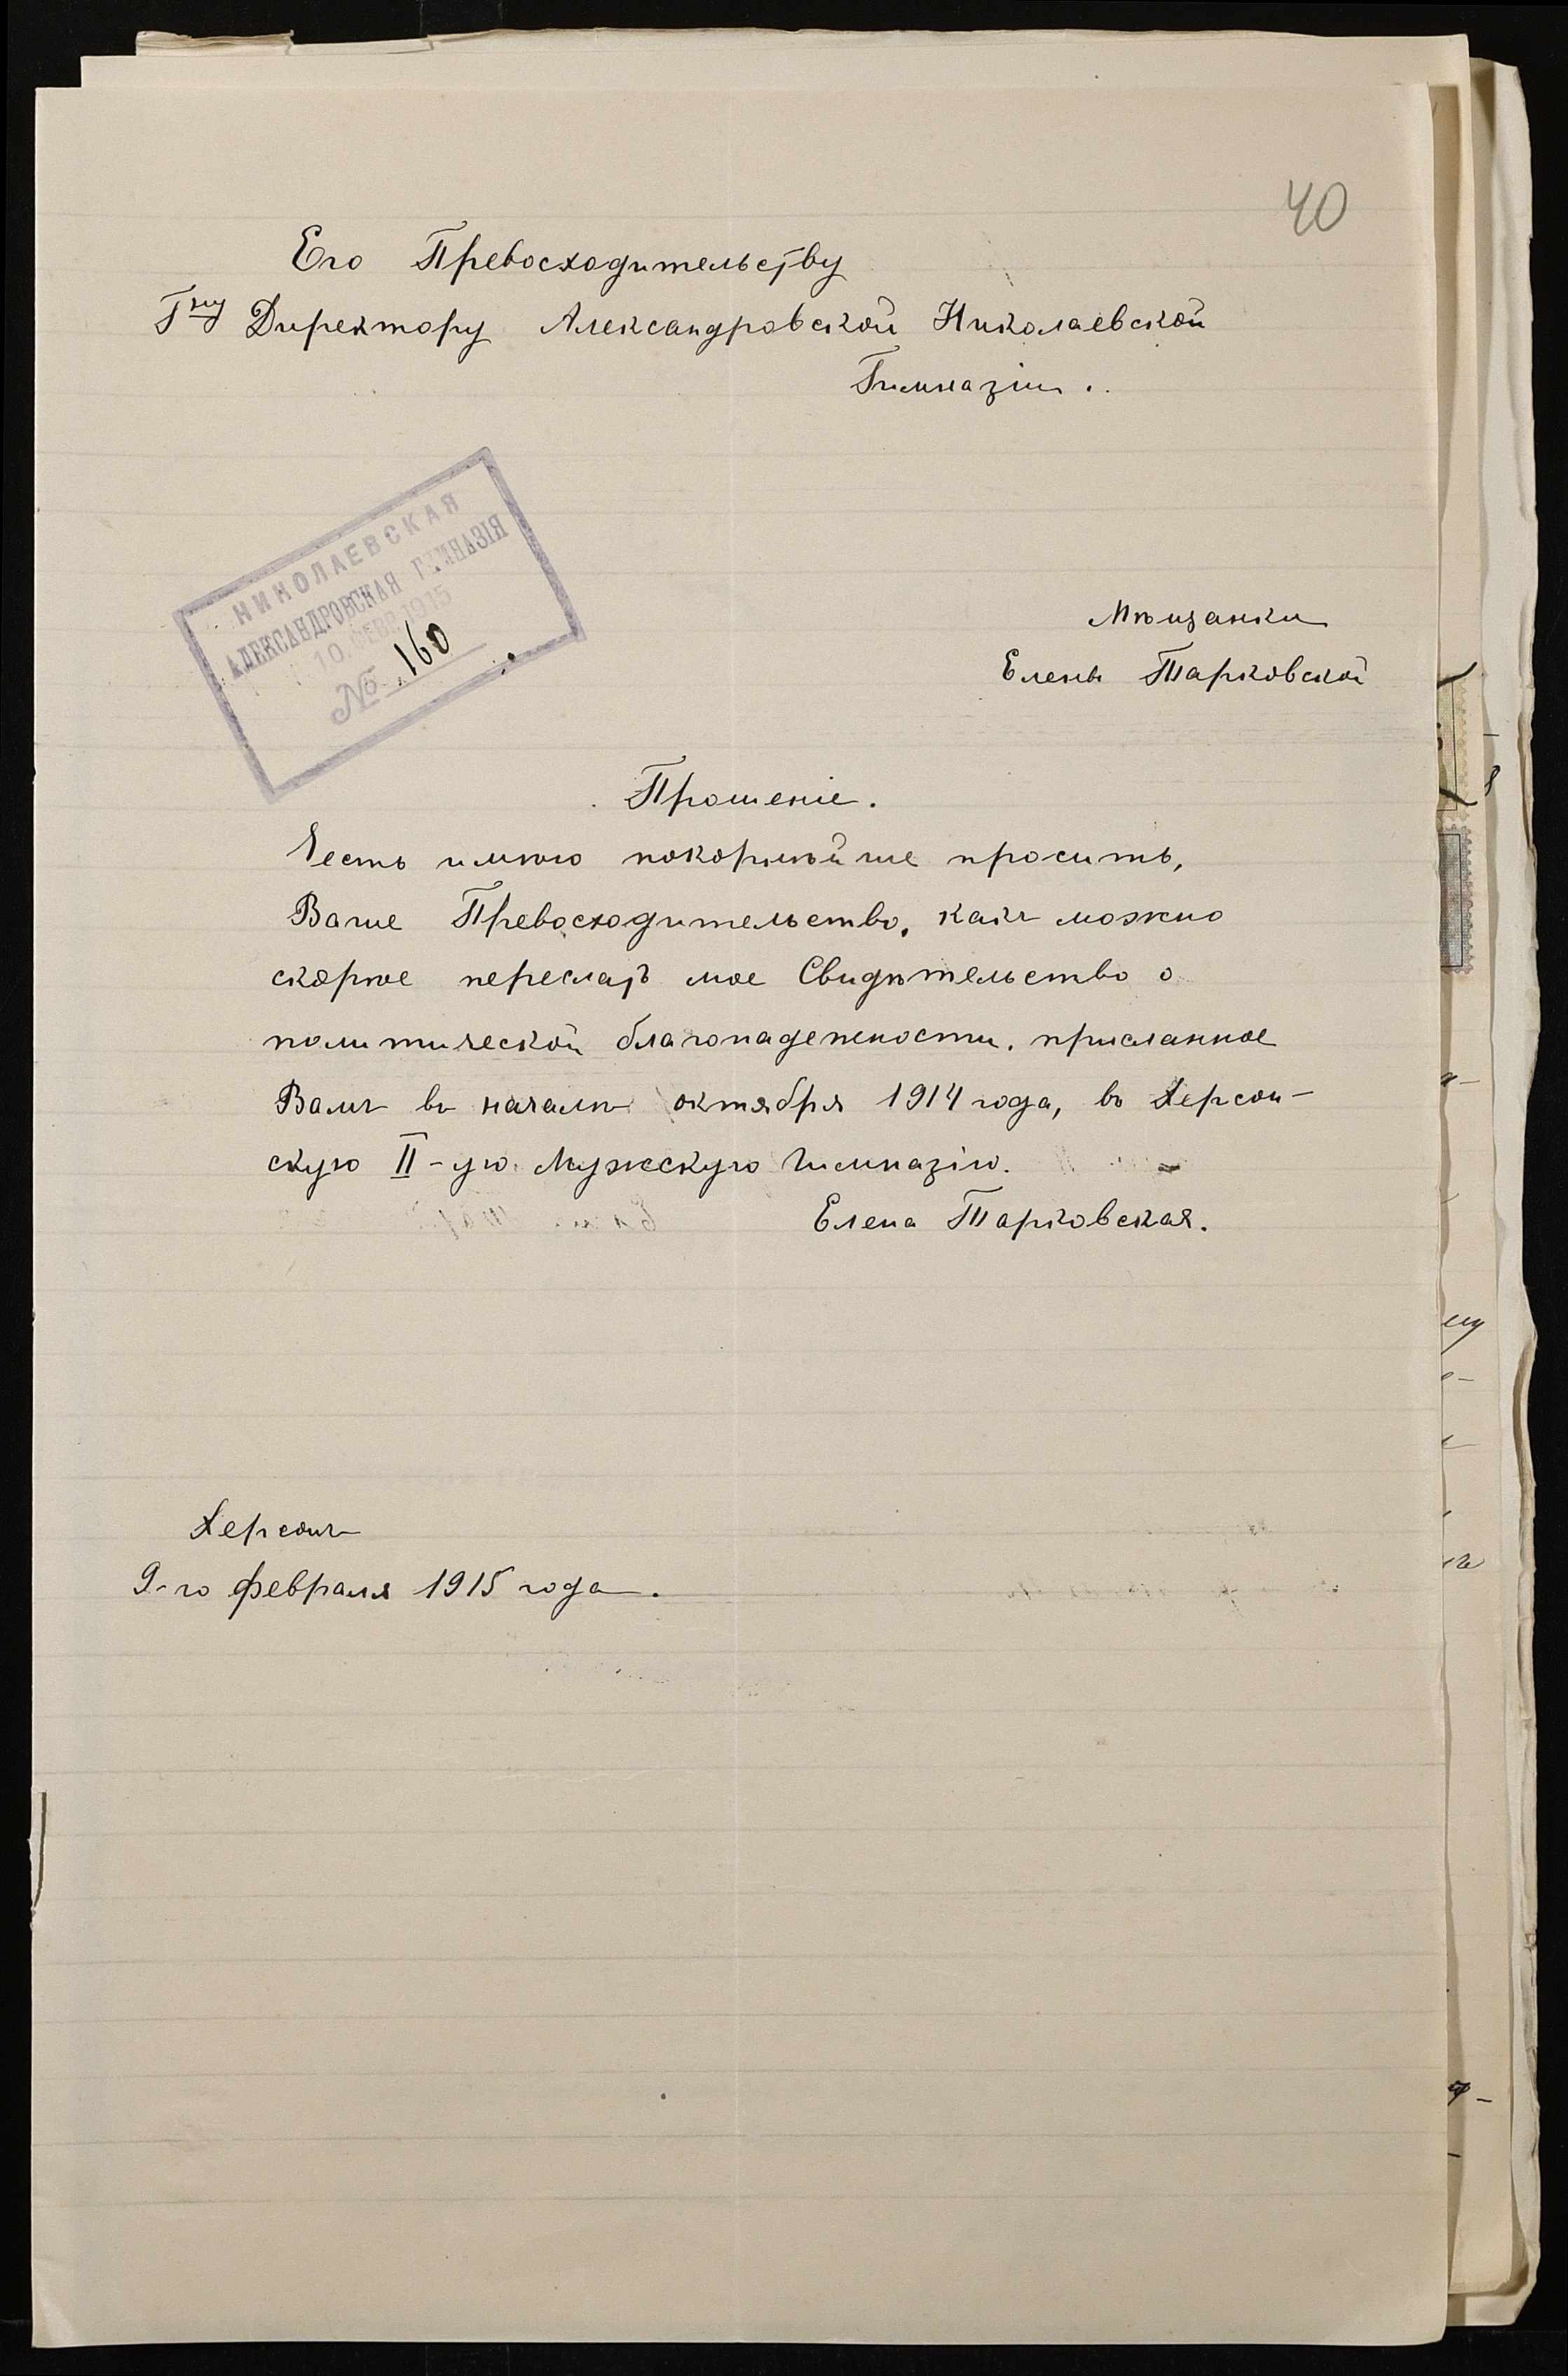 40
Его Превосходительству
Гну Директору Александровской Николаевской
Гимназіи.
НИКОЛАЕВСКАЯ
АЛЕКСАНДРОВСКАЯ ГИМНАЗІЯ
10. ФЕВР. 1915
№ 160
Мѣщанки
Елены Тарковской
Прошеніе.
Честь имѣю покорнѣйше просить,
Ваше Превосходительство, какъ можно
скорѣе переслать мое Свидѣтельство о
политической благонадежности, присланное
Вамъ въ началѣ октября 1914 года, въ Херсон-
скую II-ую Мужскую Гимназію.
Елена Тарковская.
Херсонъ
9-го февраля 1915 года.